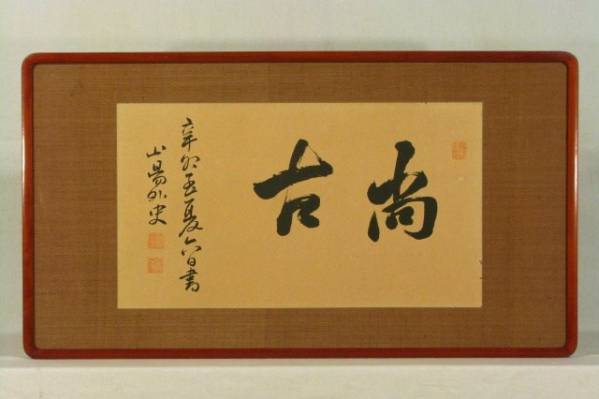 尚古
辛卯孟夏六日書
山陽外史